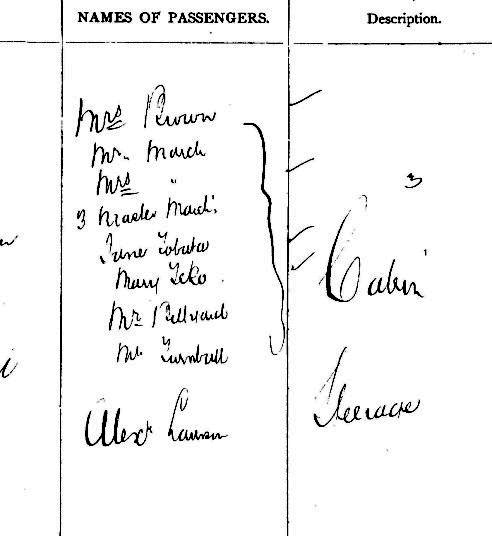 NAMES OF PASSENGERS.
Description.
Mrs Brown
Mr. March
Mrs "
3
3 Master March
Jane
Mary
Cabin
Mr
Mr. Turnbull
Steerage
Alex